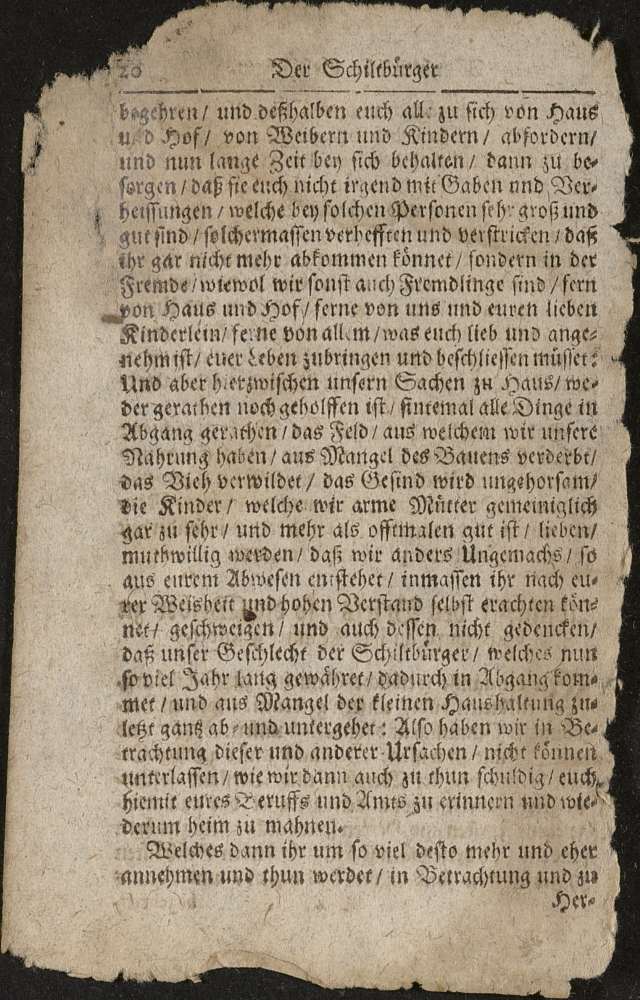 20 Der Schiltbürger
begehren / und deßhalben euch alle zu sich von Haus
und Hof / von Weibern und Kindern / abfordern /
und nun lange Zeit bey sich behalten / dann zu be-
sorgen / daß sie euch nicht irgend mit Gaben und Ver-
heissungen / welche bey solchen Personen sehr groß und
gut sind / solchermassen verhefften und verstricken / daß
ihr gar nicht mehr abkommen könnet / sondern in der
Fremde / wiewol wir sonst auch Fremdlinge sind / fern
von Haus und Hof / ferne von uns und euren lieben
Kinderlein / ferne von allem / was euch lieb und ange-
nehm ist / euer Leben zubringen und beschliessen müsset:
Und aber hierzwischen unsern Sachen zu Haus / we-
der gerathen noch geholffen ist / sintemal alle Dinge in
Abgang gerathen / das Feld / aus welchem wir unsere
Nahrung haben / aus Mangel des Bauens verderbt /
das Vieh verwildet / das Gesind wird ungehorsam /
die Kinder / welche wir arme Mütter gemeiniglich
gar zu sehr / und mehr als offtmalen gut ist / lieben /
muthwillig werden / daß wir anders Ungemachs / so
aus eurem Abwesen entstehet / inmassen ihr nach eu-
rer Weisheit und hohen Verstand selbst erachten kön-
net / geschweigen / und auch dessen nicht gedencken /
daß unser Geschlecht der Schiltbürger / welches nun
so viel Jahr lang gewähret / dadurch in Abgang kom-
met / und aus Mangel der kleinen Haushaltung zu-
letzt gantz ab- und untergehet: Also haben wir in Be-
trachtung dieser und anderer Ursachen / nicht können
unterlassen / wie wir dann auch zu thun schuldig / euch
hiemit eures Beruffs und Amts zu erinnern und wie-
derum heim zu mahnen.
Welches dann ihr um so viel desto mehr und eher
annehmen und thun werdet / in Betrachtung und zu
Her-